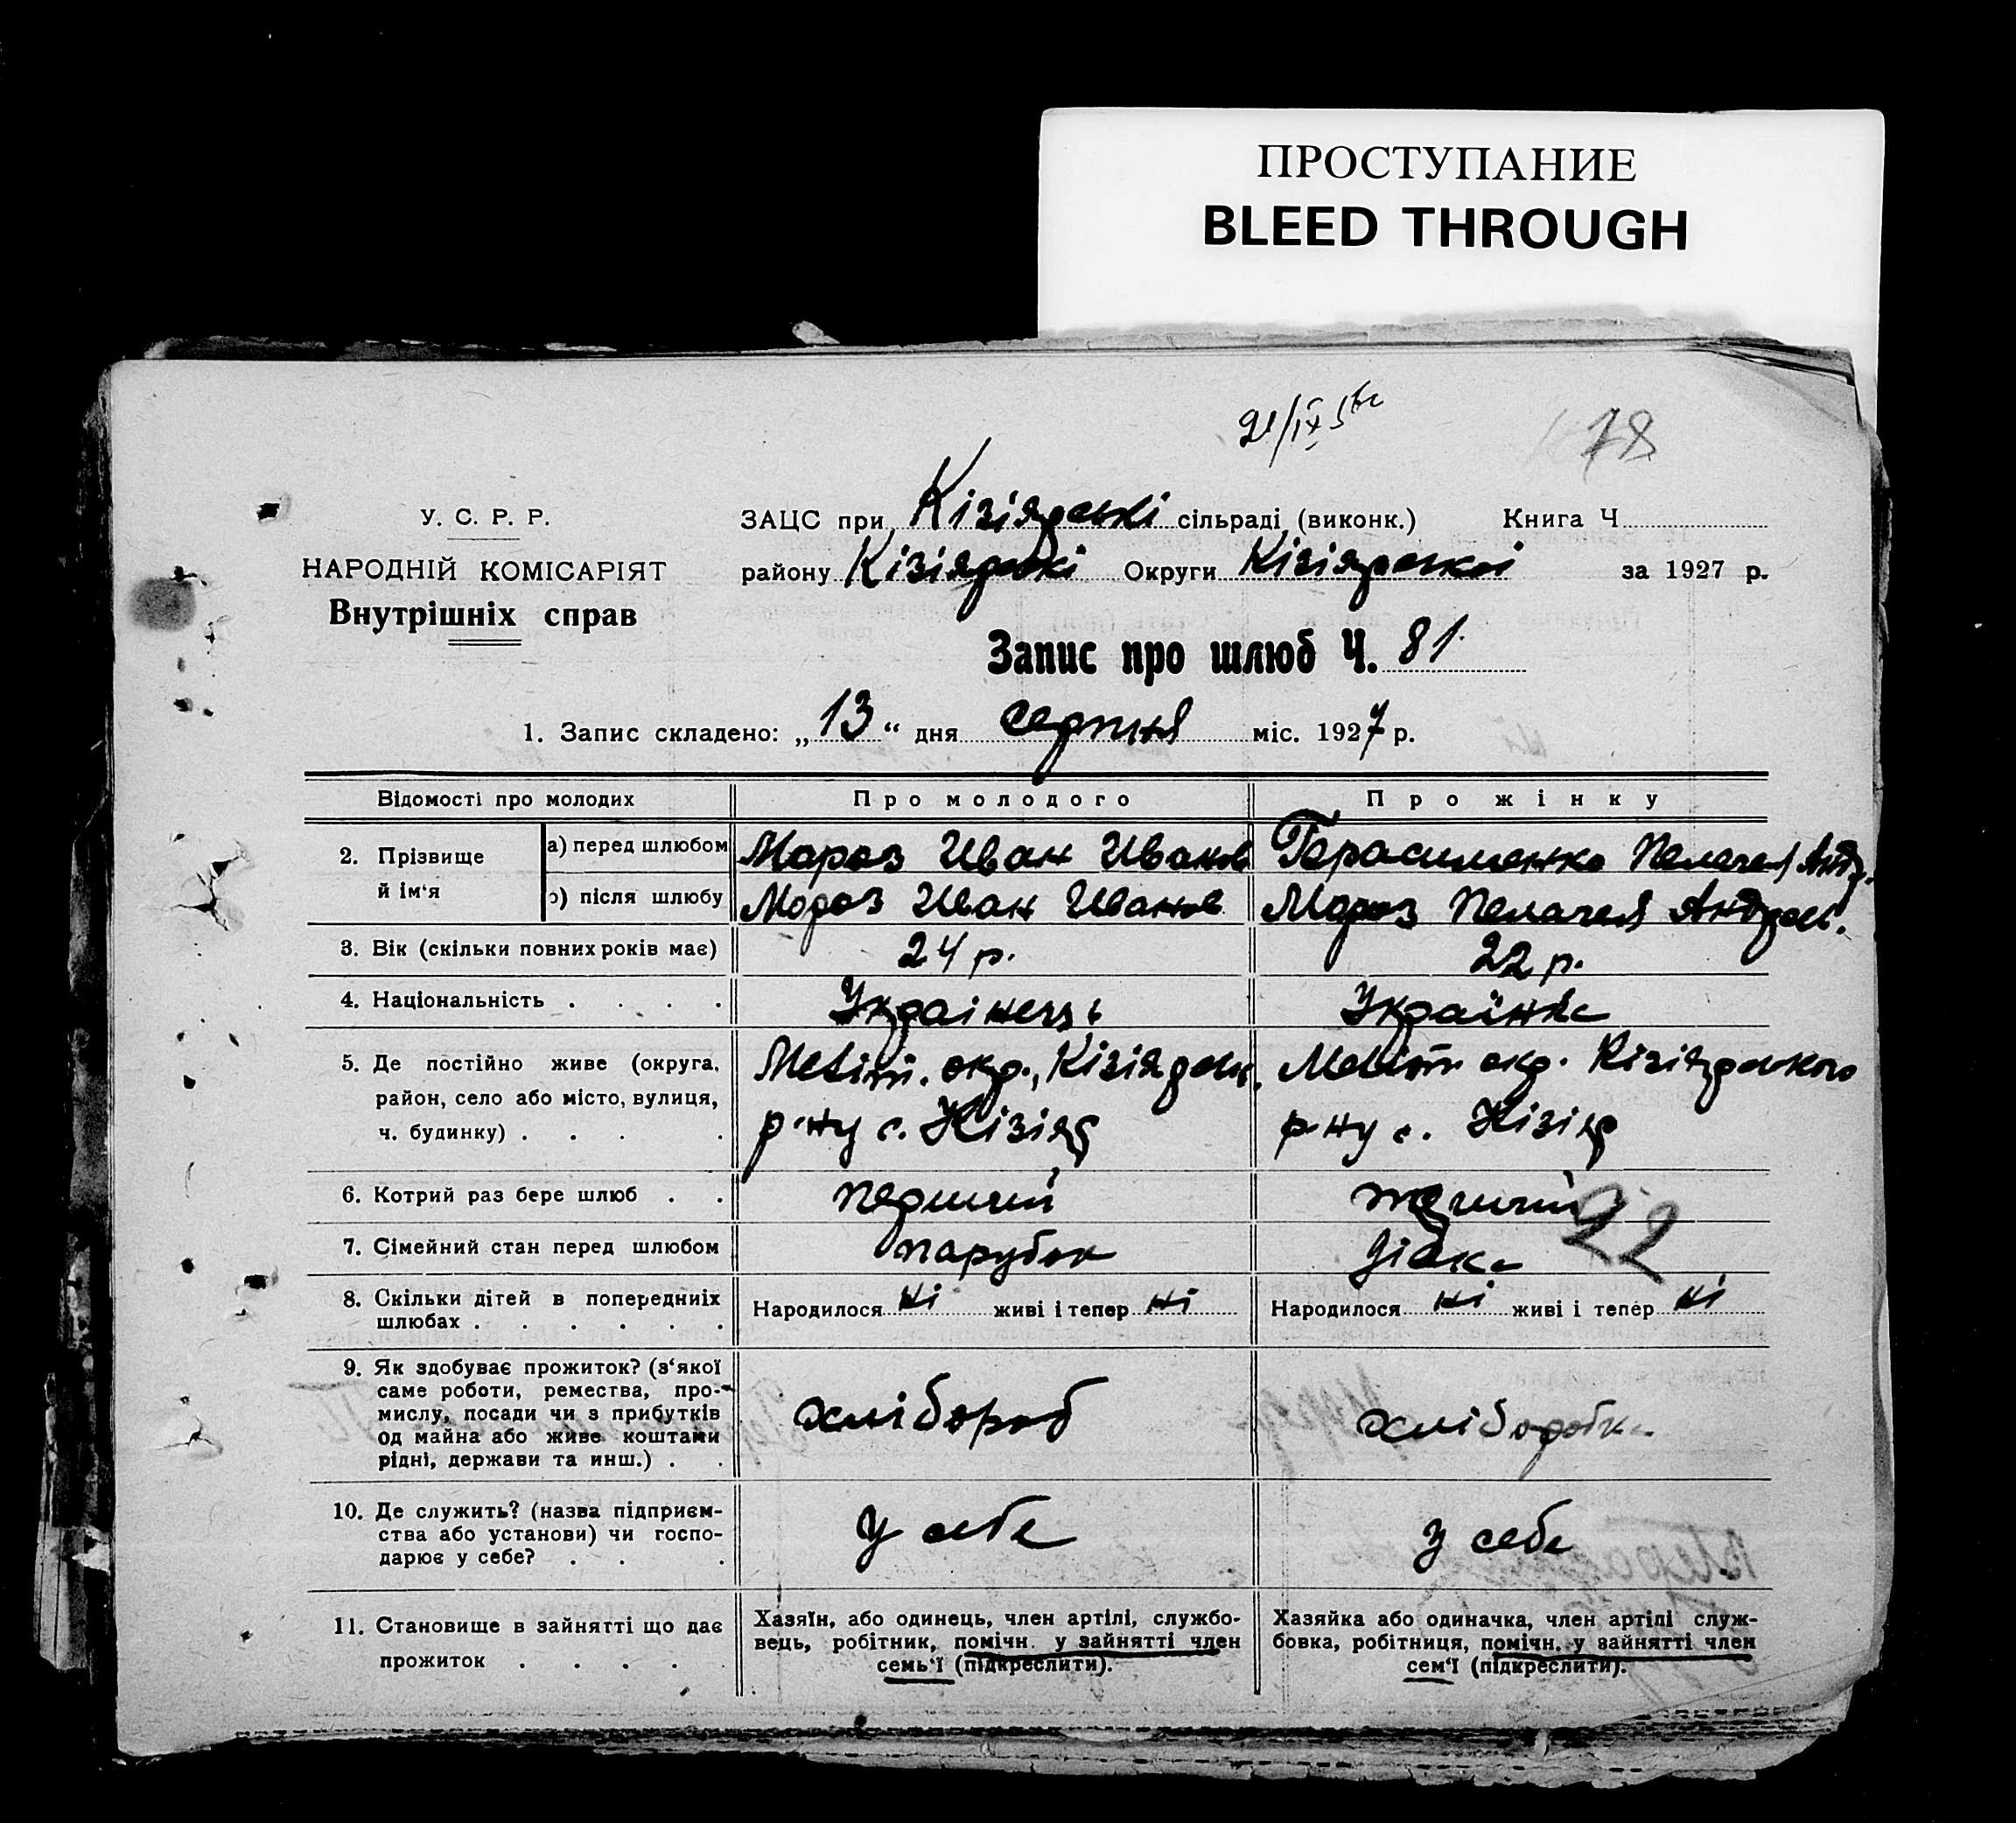 ПРОСТУПАНИЕ
BLEED THROUGH
78
У. С. Р. Р.
НАРОДНІЙ КОМІСАРІЯТ
Внутрішніх справ
ЗАЦС при Кізіярські сільраді (виконк.) Книга Ч
району Кізіярські Округи Кізіярської за 1927 р.
Запис про шлюб Ч. 81
1. Запис складено: „13“ дня серпня міс. 1927 р.
Відомості про молодих
Про молодого
Про жінку
2. Прізвище й ім‘я
а) перед шлюбом
Мороз Иван Иванов
Герасименко Пелагея Андр.
э) після шлюбу
Мороз Иван Иванов
Мороз Пелагея Андреев.
3. Вік (скільки повних років має)
24 р.
22 р.
4. Національність . . . .
Украінець
Українка
5. Де постійно живе (округа,
район, село або місто, вулиця,
ч. будинку) . . . .
Меліт. окр., Кізіярськ.
р-ну с. Кізіяр
Меліт окр. Кізіярського
р-ну с. Кізіяр
6. Котрий раз бере шлюб . .
перший
перший
22
7. Сімейний стан перед шлюбом
парубок
дівка
8. Скільки дітей в попередниіх
шлюбах . . . . . .
Народилося ні живі і тепер ні
Народилося ні живі і тепер ні
9. Як здобуває прожиток? (з‘якої
саме роботи, ремества, про-
мислу, посади чи з прибутків
од майна або живе коштами
рідні, держави та инш.) . .
хлібороб
хліборобка
10. Де служить? (назва підприєм-
ства або установи) чи госпо-
дарює у себе? . . .
У себе
У себе
11. Становище в зайнятті що дає
прожиток . . . . .
Хазяїн, або одинець, член артілі, службо-
вець, робітник, помічн. у зайнятті член
семь‘ї (підкреслити).
Хазяйка або одиначка, член артілі служ-
бовка, робітниця, помічн. у зайнятті член
сем‘ї (підкреслити).